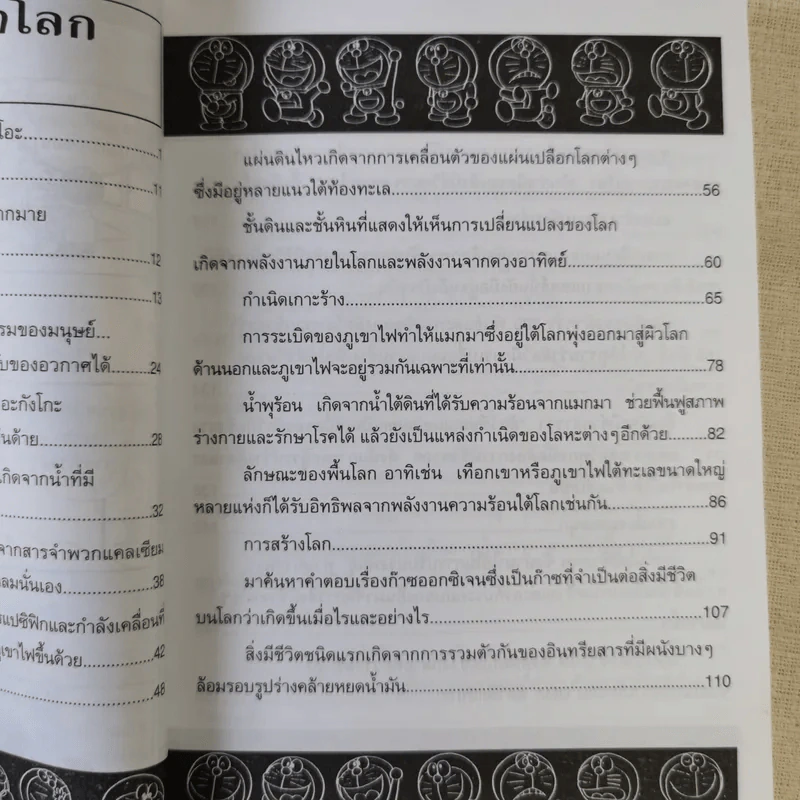 โลก
โอะ...............1
...............11
ากมาย
...............12
...............13
รมของมนุษย์...
ับของอวกาศได้........24
อะกังโกะ
ันด้วย...............28
เกิดจากน้ำที่มี
...............32
จากสารจำพวกแคลเซียม
ลมนั่นเอง...............38
แปซิฟิกและกำลังเคลื่อนที่
ภูเขาไฟขึ้นด้วย...............42
...............48
แผ่นดินไหวเกิดจากการเคลื่อนตัวของแผ่นเปลือกโลกต่างๆ
ซึ่งมีอยู่หลายแนวใต้ท้องทะเล...............56
ชั้นดินและชั้นหินที่แสดงให้เห็นการเปลี่ยนแปลงของโลก
เกิดจากพลังงานภายในโลกและพลังงานจากดวงอาทิตย์...............60
กำเนิดเกาะร้าง...............65
การระเบิดของภูเขาไฟทำให้แมกมาซึ่งอยู่ใต้โลกพุ่งออกมาสู่ผิวโลก
ด้านนอกและภูเขาไฟจะอยู่รวมกันเฉพาะที่เท่านั้น...............78
น้ำพุร้อน เกิดจากน้ำใต้ดินที่ได้รับความร้อนจากแมกมา ช่วยฟื้นฟูสภาพ
ร่างกายและรักษาโรคได้ แล้วยังเป็นแหล่งกำเนิดของโลหะต่างๆอีกด้วย........82
ลักษณะของพื้นโลก อาทิเช่น เทือกเขาหรือภูเขาไฟใต้ทะเลขนาดใหญ่
หลายแห่งก็ได้รับอิทธิพลจากพลังงานความร้อนใต้โลกเช่นกัน...............86
การสร้างโลก...............91
มาค้นหาคำตอบเรื่องก๊าซออกซิเจนซึ่งเป็นก๊าซที่จำเป็นต่อสิ่งมีชีวิต
บนโลกว่าเกิดขึ้นเมื่อไรและอย่างไร...............107
สิ่งมีชีวิตชนิดแรกเกิดจากการรวมตัวกันของอินทรียสารที่มีผนังบางๆ
ล้อมรอบรูปร่างคล้ายหยดน้ำมัน...............110